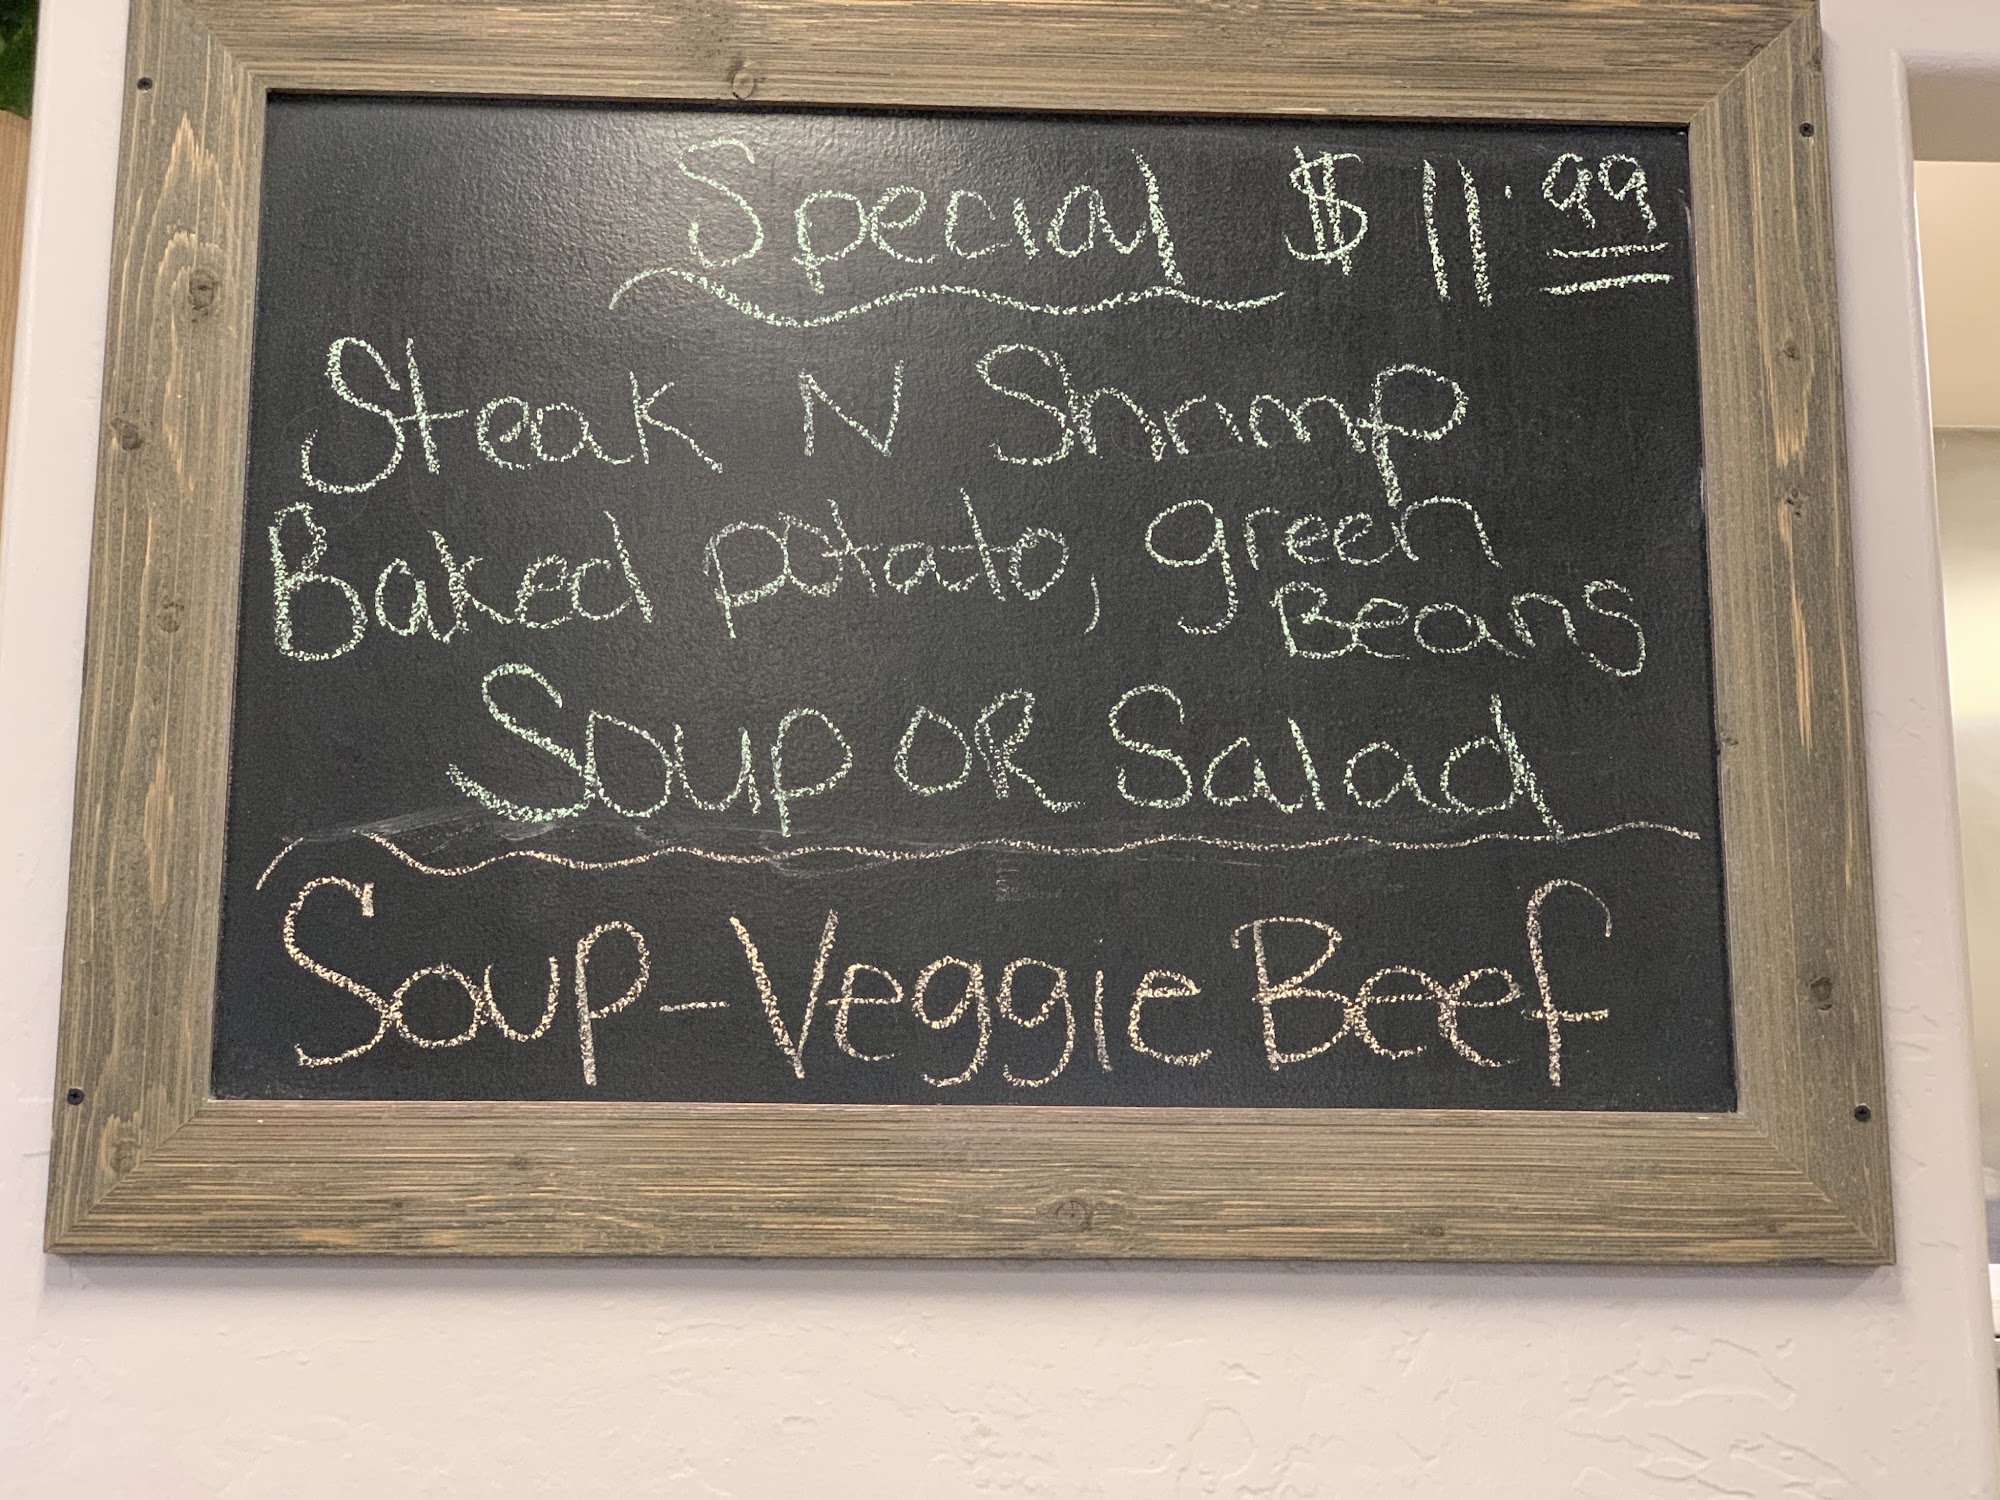 Special $11.99
Steak N Shrimp
Baked potato, green
Beans
Soup OR Salad
Soup-Veggie Beef